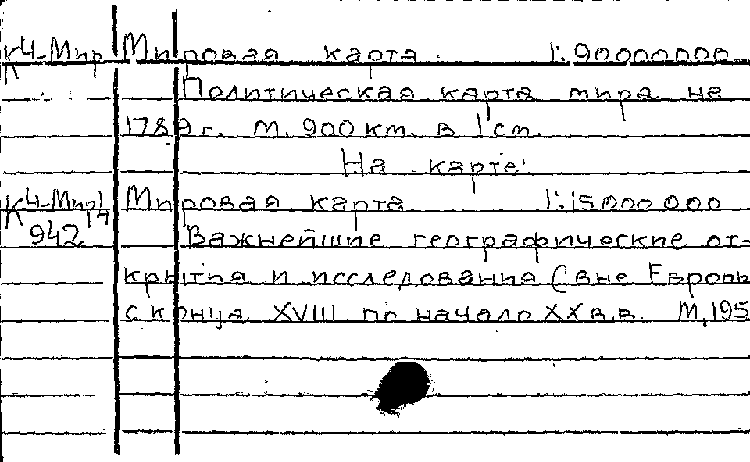 К4-Мир Мировая карта. 1:90000000
Политическая карта мира на
1789 г. М. 900 км. в 1 см.
На карте:
К4-Мир1 Мировая карта 1:15000000
942. 17 Важнейшие географические от-
крытия и исследования (вне Европы
с конца XVIII по начало XX в.в. М, 195